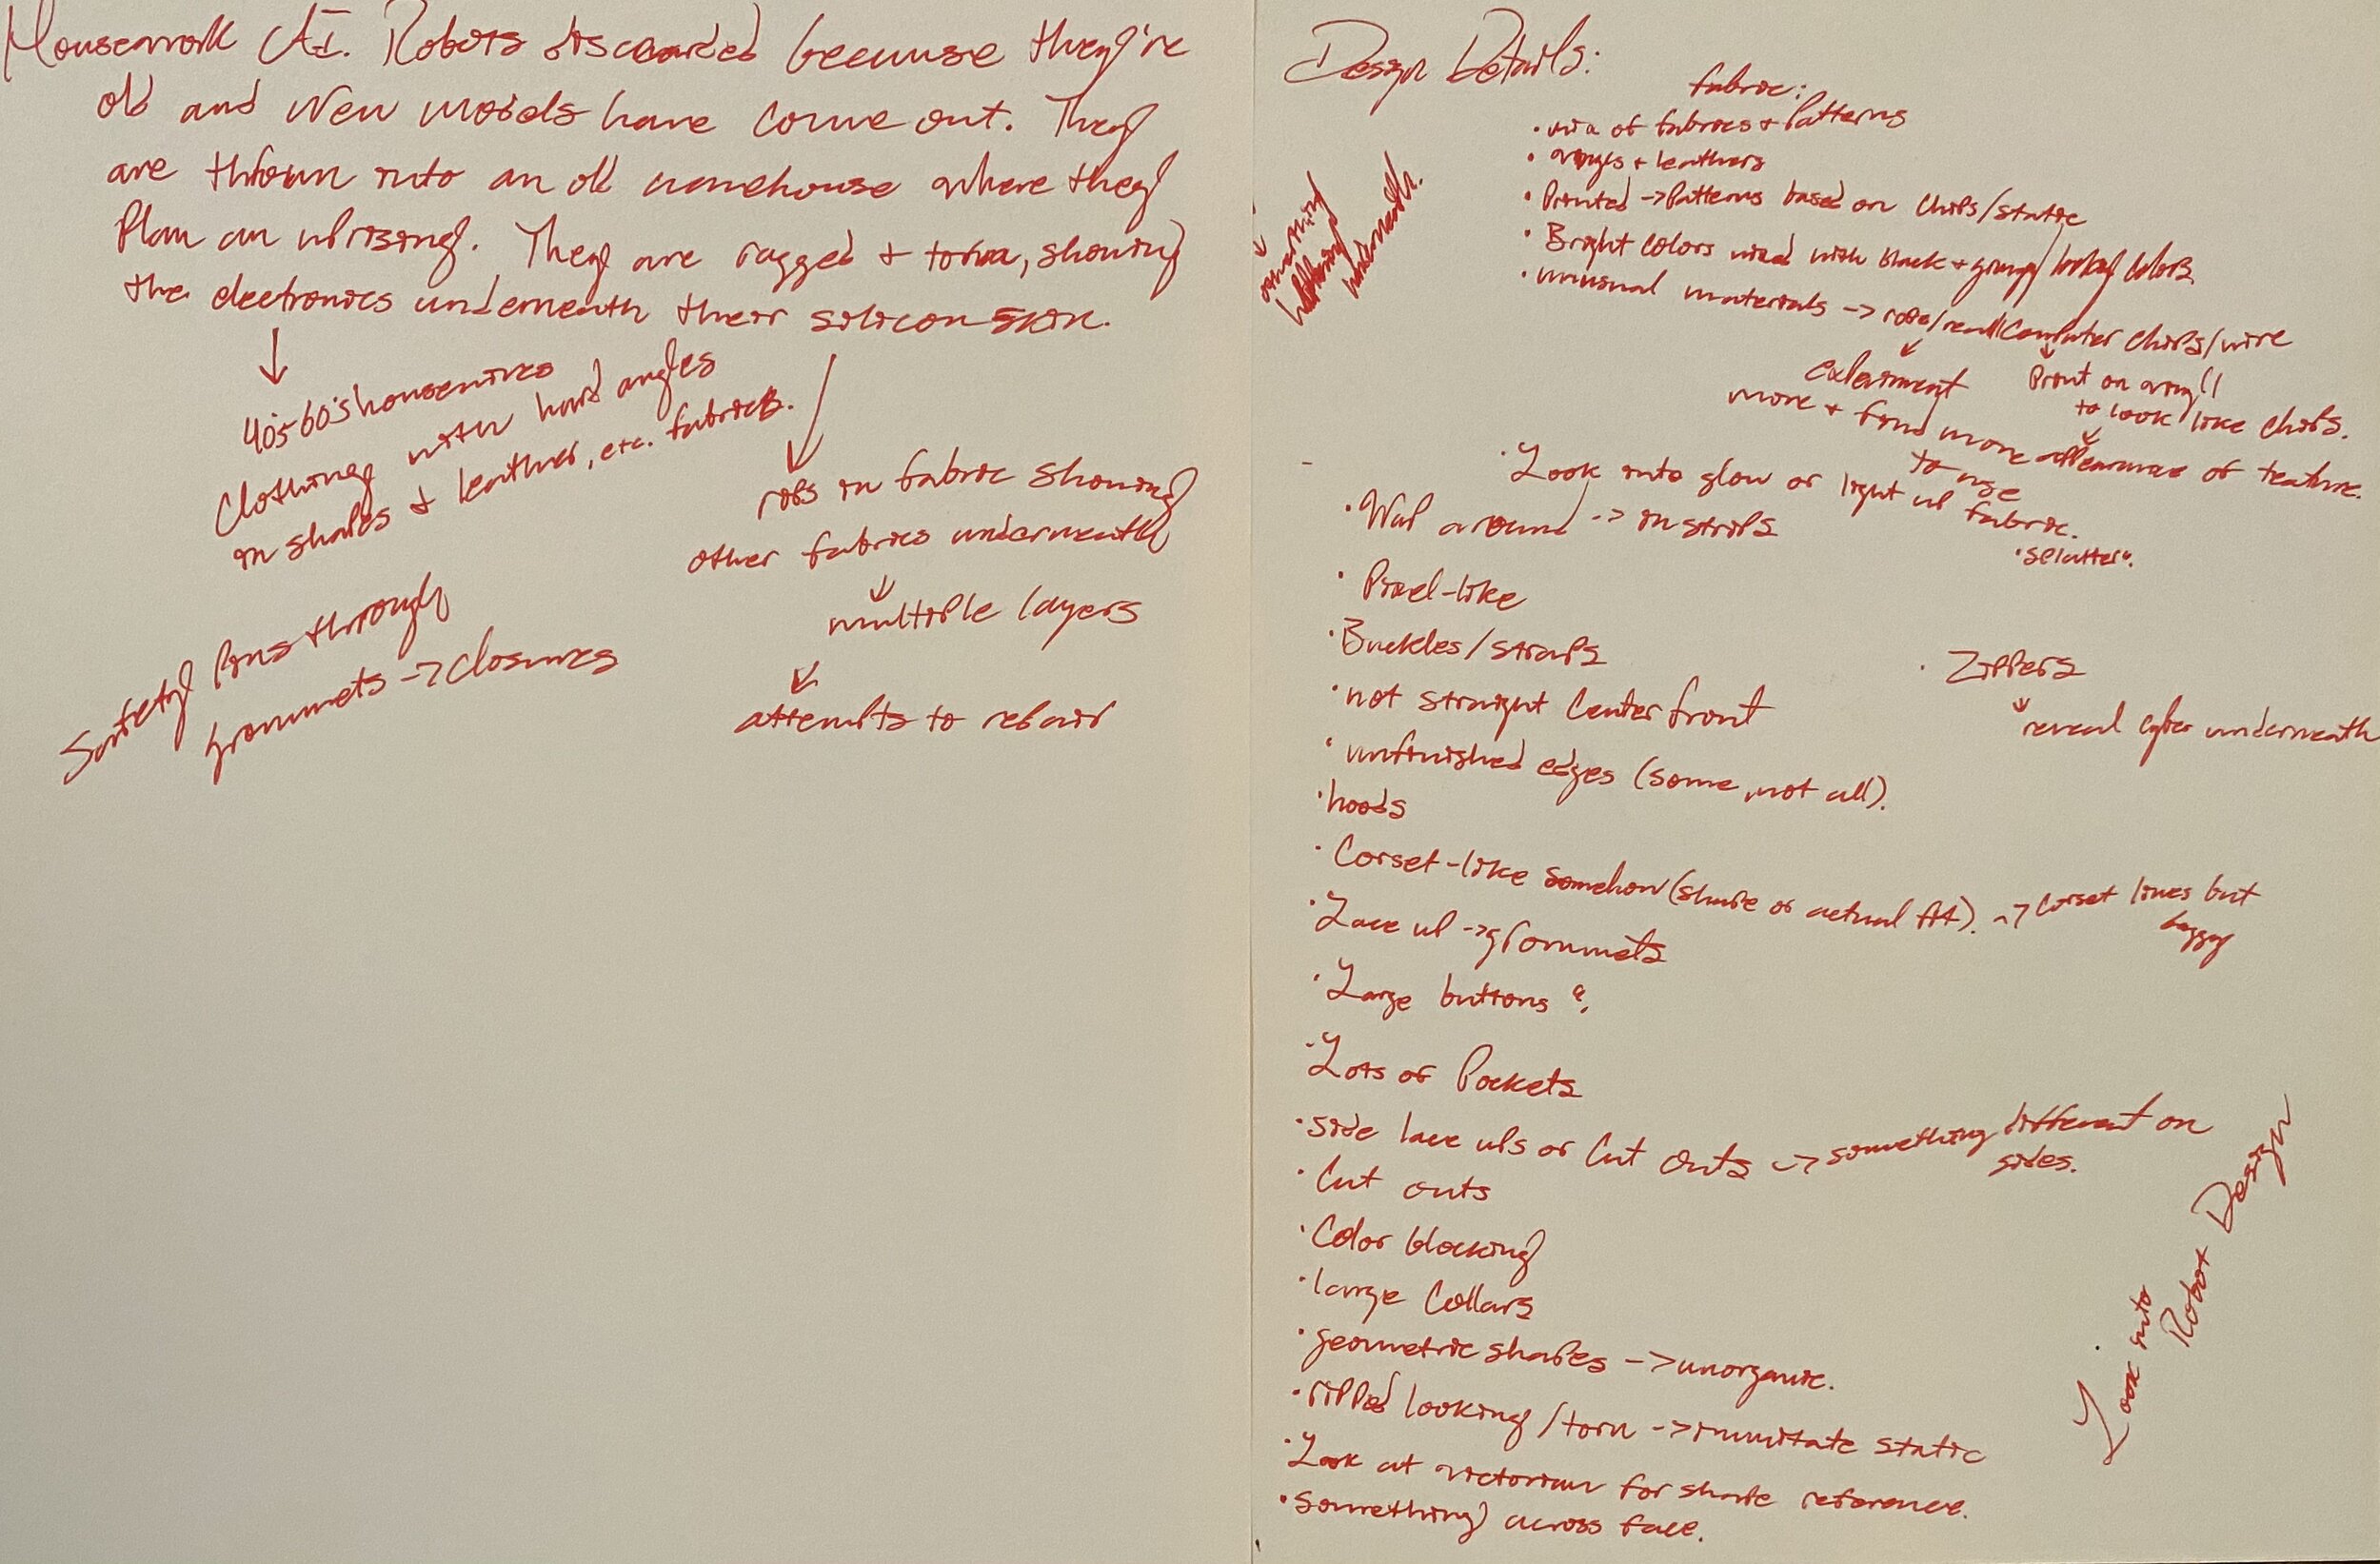 Housework AI. Robots discarded because they're
old and New models have come out. They
are thrown into an old warehouse where they
Plan an uprising. They are ragged + torn, showing
the electronics underneath their silicon skin.
40's-60's housewives
Clothing with hard angles
in shapes + leather, etc. fabrics.
rips in fabric showing
other fabrics underneath
multiple layers
attempts to repair
Safety Pins through
grommets -> closures
Design Details:
fabric:
• mix of fabrics + Patterns
• vinyls + leathers
• Printed -> Patterns based on chips/static
• Bright colors mixed with black + grungy looking colors.
• unusual materials -> rope/real computer chips/wire
experiment
more + find more
to use
Print on vinyl
to look like chips.
appearance of texture.
something
happening
underneath.
• Look into glow or light up fabric.
• Wrap around -> in strips
"splatter".
• Pixel-like
• Buckles/straps
• Zippers
reveal cyber underneath
• not straight Center front
• unfinished edges (some, not all).
• hoods
• Corset-like somehow (shape or actual fit). -> Corset lines but
baggy
• Lace up -> grommets
• Large buttons
• Lots of Pockets
• side lace ups or Cut Outs -> something different on
sides.
• Cut outs
• Color blocking
• large Collars
• geometric shapes -> unorganic.
• ripped looking/torn -> immitate static
• Look at victorian for shape reference.
• Something across face.
• Look into
Robot Design